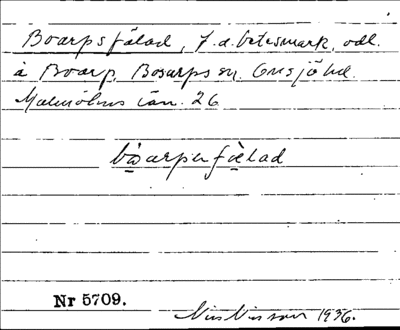 Boarpsfälad, f.d. betesmark, odl.
å Boarp, Bosarps sn. Onsjö hd.
Malmöhus län. 26
bωarpənfælad
Nr 5709.
Nils Nilsson 1936.